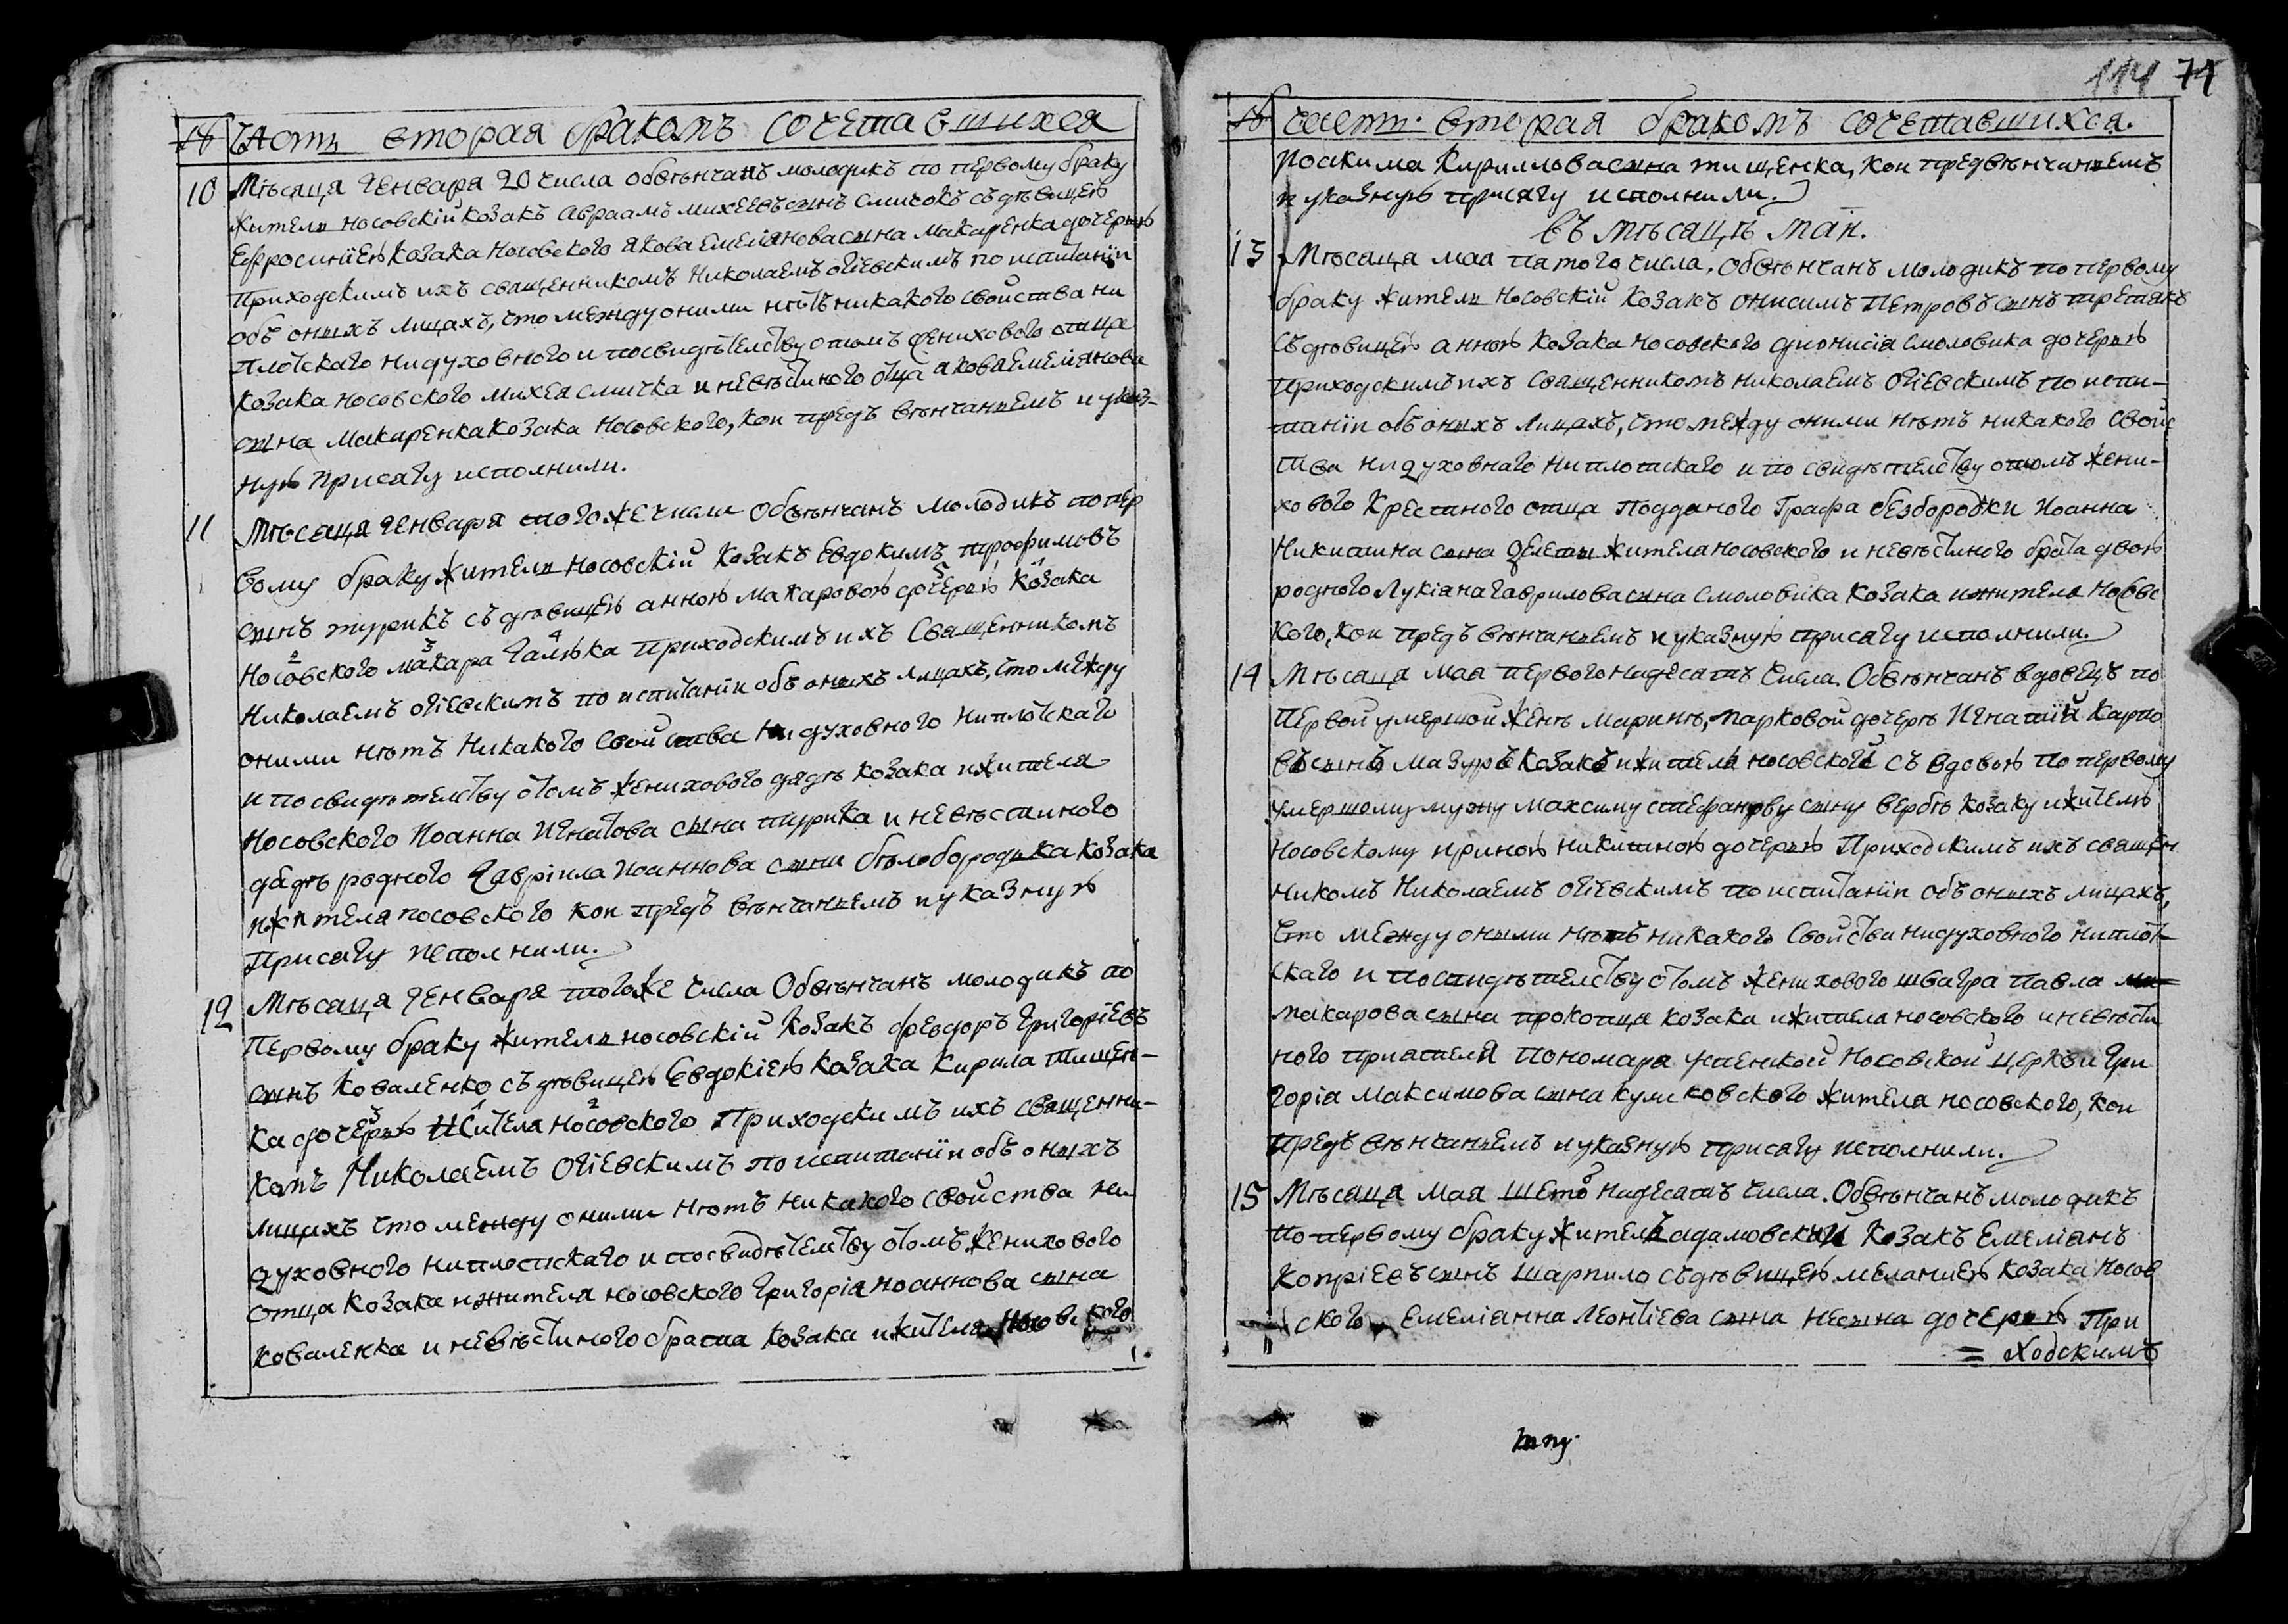 № Часть вторая бракомъ сочетавшихся
10 Мѣсяца Генваря 20 числа обвѣнчанъ молодикъ по первому браку
житель носовскій козакъ Авраамъ Михеевъ сынъ Смичокъ съ дѣвицею
Ефросиніею козака носовского Якова Емеліянова сына Макаренка дочерью
приходскимъ ихъ священникомъ Николаемъ Огіевскимъ по испитаніи
объ оныхъ лицахъ, что между оними нѣтъ никакого свойства ни
плотского ни духовного и по свидѣтелству отомъ женихового отца
козака носовского Михея Смичка и невѣстиного отца Якова Емеліянова
сына Макаренка козака носовского, кои предъ вѣнчаніемъ и указ-
ную присягу исполнили.
11 Мѣсяца Генваря того же числа обвѣнчанъ молодикъ по пер
вому браку житель носовскій козакъ Евдокимъ Трофимовъ
сынъ Турикъ съ дѣвицею Анною Макаровою дочерью козака
носовского Макара Галѣка приходскимъ ихъ священникомъ
Николаемъ Огіевскимъ по испитаніи объ оныхъ лицахъ, что между
оними нѣтъ никакого свойства ни духовного ни плотского
и по свидѣтелству отомъ женихового дядѣ козака и жителя
носовского Иоанна Игнатова сына Турика и невѣстиного
дядѣ родного Гавріила Иоаннова сына Бѣлобородька козака
и жителя носовского кои предъ вѣнчаніемъ и указную
присягу исполнили.
12 Мѣсяца Генваря того же числа обвѣнчанъ молодикъ по
первому браку житель носовскій козакъ Феодоръ Григоріевъ
сынъ Коваленко съ дѣвицею Евдокіею козака Кирила Тищен-
ка дочерью жителя носовского приходскимъ ихъ священни-
комъ Николаемъ Огіевскимъ по испитаніи объ оныхъ
лицахъ что между оними нѣтъ никакого свойства ни
духовного ни плотскаго и по свидѣтелству отомъ женихового
отца козака и жителя носовского Григорія Иоаннова сына
Коваленка и невѣстиного брата козака и жителя носовского
114 71
№ Часть вторая бракомъ сочетавшихся.
Иоакима Кирилова сына Тищенка, кои предъ вѣнчаніемъ
и указную присягу исполнили.
въ мѣсяцѣ маи.
13 Мѣсяца мая пятого числа, обвѣнчанъ молодикъ по первому
браку житель носовскій козакъ Онисимъ Петровъ сынъ Третякъ
съ дѣвицею Анною козака носовского Дионисія Смоловика дочерью
приходскимъ ихъ священникомъ Николаемъ Огіевскимъ по испи-
таніи объ оныхъ лицахъ, что между оними нѣтъ никакого свойс
тва ни духовнаго ни плотскаго и по свидѣтелству отомъ жени-
хового крестного отца подданого графа Безбородки Иоанна
Никитина сына жителя носовского и невѣстиного брата двою
родного Лукіана Гаврилова сына Смоловика козака и жителя носовс
кого, кои предъ вѣнчаніемъ и указную присягу исполнили.
14 Мѣсяца мая первого надесять числа обвѣнчанъ вдовецъ по
первой умершой женѣ Маринѣ, Марковой дочерѣ Игнатій Карпо
въ сынъ Мазуръ козакъ и житель носовскій съ вдовою по первому
умершому мужу Максиму Стефанову сыну Вербѣ козаку и жителю
носовскому Ириною Никитиною дочерью приходскимъ ихъ священ
никомъ Николаемъ Огіевскимъ по испитаніи объ оныхъ лицахъ,
что между оными нѣтъ никакого свойства ни духовного ни плот-
скаго и по свидѣтелству отомъ женихового швагра Павла
Макарова сына Прокопця козака и жителя носовского и невѣсти
ного приателя пономаря Успенской носовской церкви Гри
горія Максимова сына Куликовского жителя носовского, кои
предъ вѣнчаніемъ и указную присягу исполнили.
15 Мѣсяца мая шестого надесять числа. Обвѣнчанъ молодикъ
по первому браку житель адамовскій козакъ Емеліянъ
Копріевъ сынъ Шарпило съ дѣвицею Меланиею козака носов
ского Емеліанна Леонтіева сына дочерью при
= ходскимъ